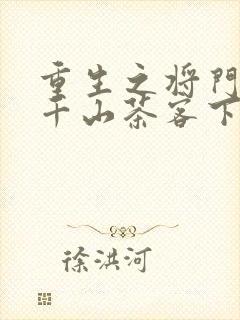 重生之将門
千山茶客下
徐洪河